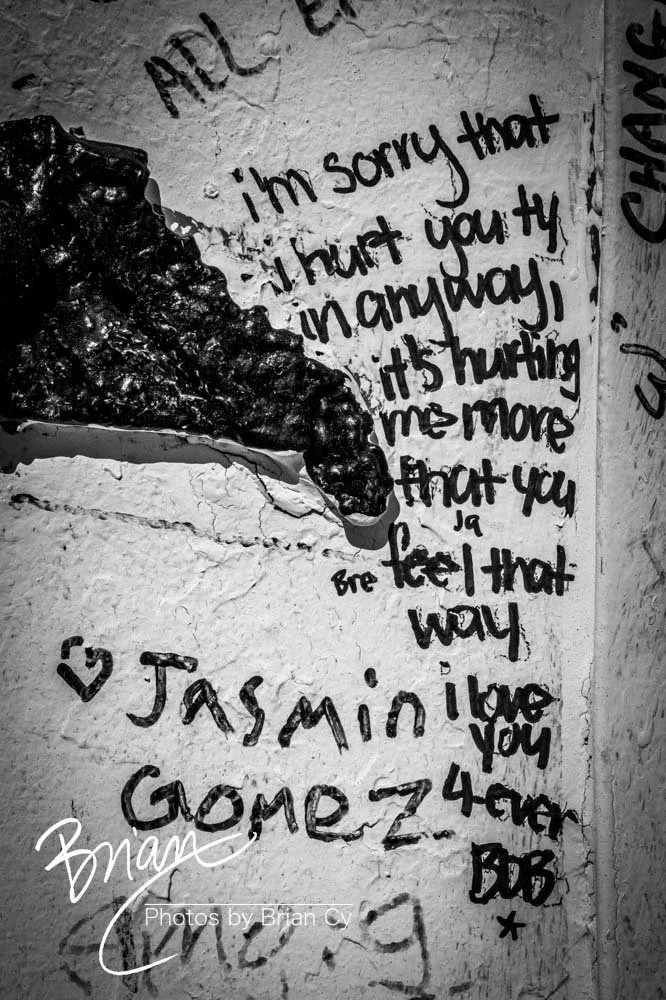 ALL
CHANG
i'm sorry that
i hurt you ty
in anyway,
it's hurting
me more
that you
Ja
Bre feel that
way
Jasmin
Gomez
i love
you
4-ever
BDB
*
Brian
Photos by Brian Cy